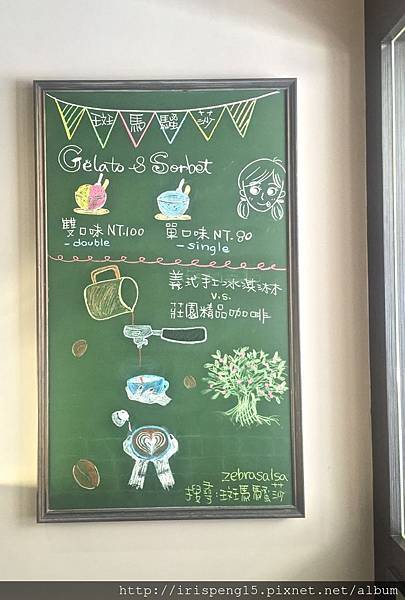 斑馬騷莎
Gelato & Sorbet
雙口味 NT.100
- double
單口味 NT.80
- single
義式手工冰淇淋
v.s.
莊園精品咖啡
zebrasalsa
搜尋:斑馬騷莎
http://irispeng15.pixnet.net/album